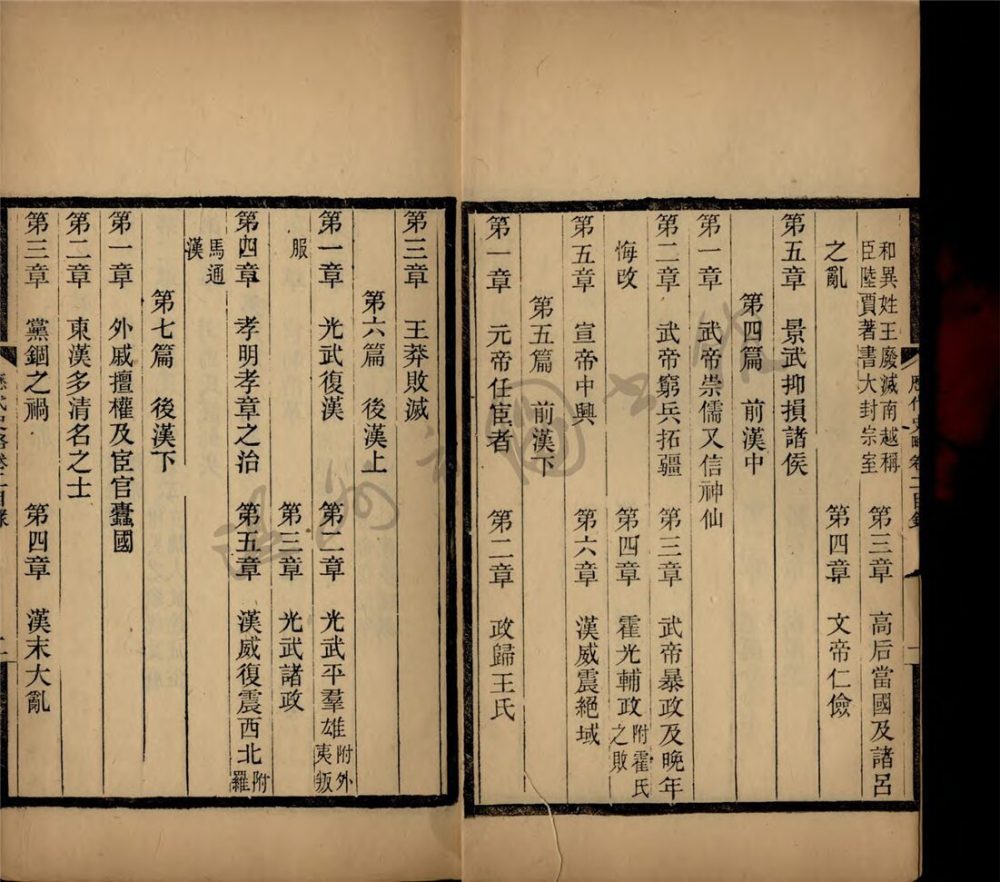 和異姓王廢滅南越稱
臣陸賈著書大封宗室
第三章　高后當國及諸呂
之亂
第四章　文帝仁儉
第五章　景武抑損諸侯
第四篇　前漢中
第一章　武帝崇儒又信神仙
第二章　武帝窮兵拓疆
第三章　武帝暴政及晚年
悔改
第四章　霍光輔政附霍氏之敗
第五章　宣帝中興
第六章　漢威震絕域
第五篇　前漢下
第一章　元帝任宦者
第二章　政歸王氏
第三章　王莽敗滅
第六篇　後漢上
第一章　光武復漢
第二章　光武平羣雄附外夷叛
服
第三章　光武諸政
第四章　孝明孝章之治
第五章　漢威復震西北附羅
馬通漢
第七篇　後漢下
第一章　外戚擅權及宦官蠹國
第二章　東漢多清名之士
第三章　黨錮之禍
第四章　漢末大亂
歷代史略卷二目錄
一
歷代史略卷二目錄
二